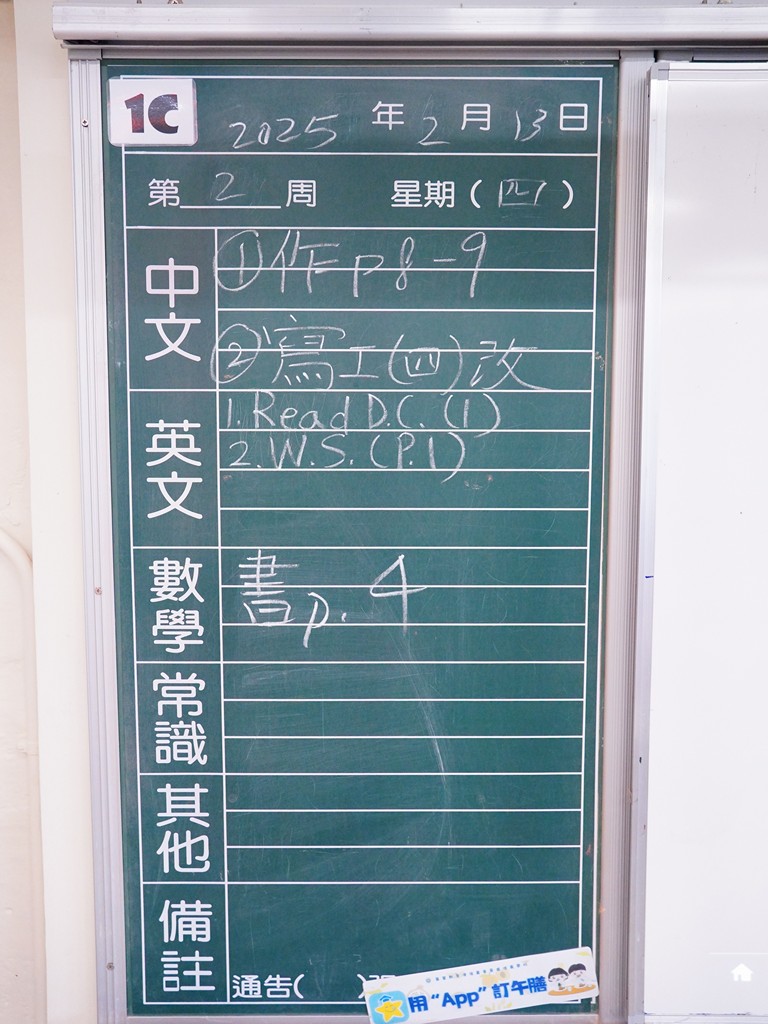 1C
2025 年 2 月 13 日
第 2 周 星期 ( 四 )
中文
① 作 p 8-9
② 寫工(四)改
英文
1. Read D.C. (1)
2. W.S. (P.1)
數學
書 p. 4
常識
其他
備註
通告( )
用 “App” 訂午膳